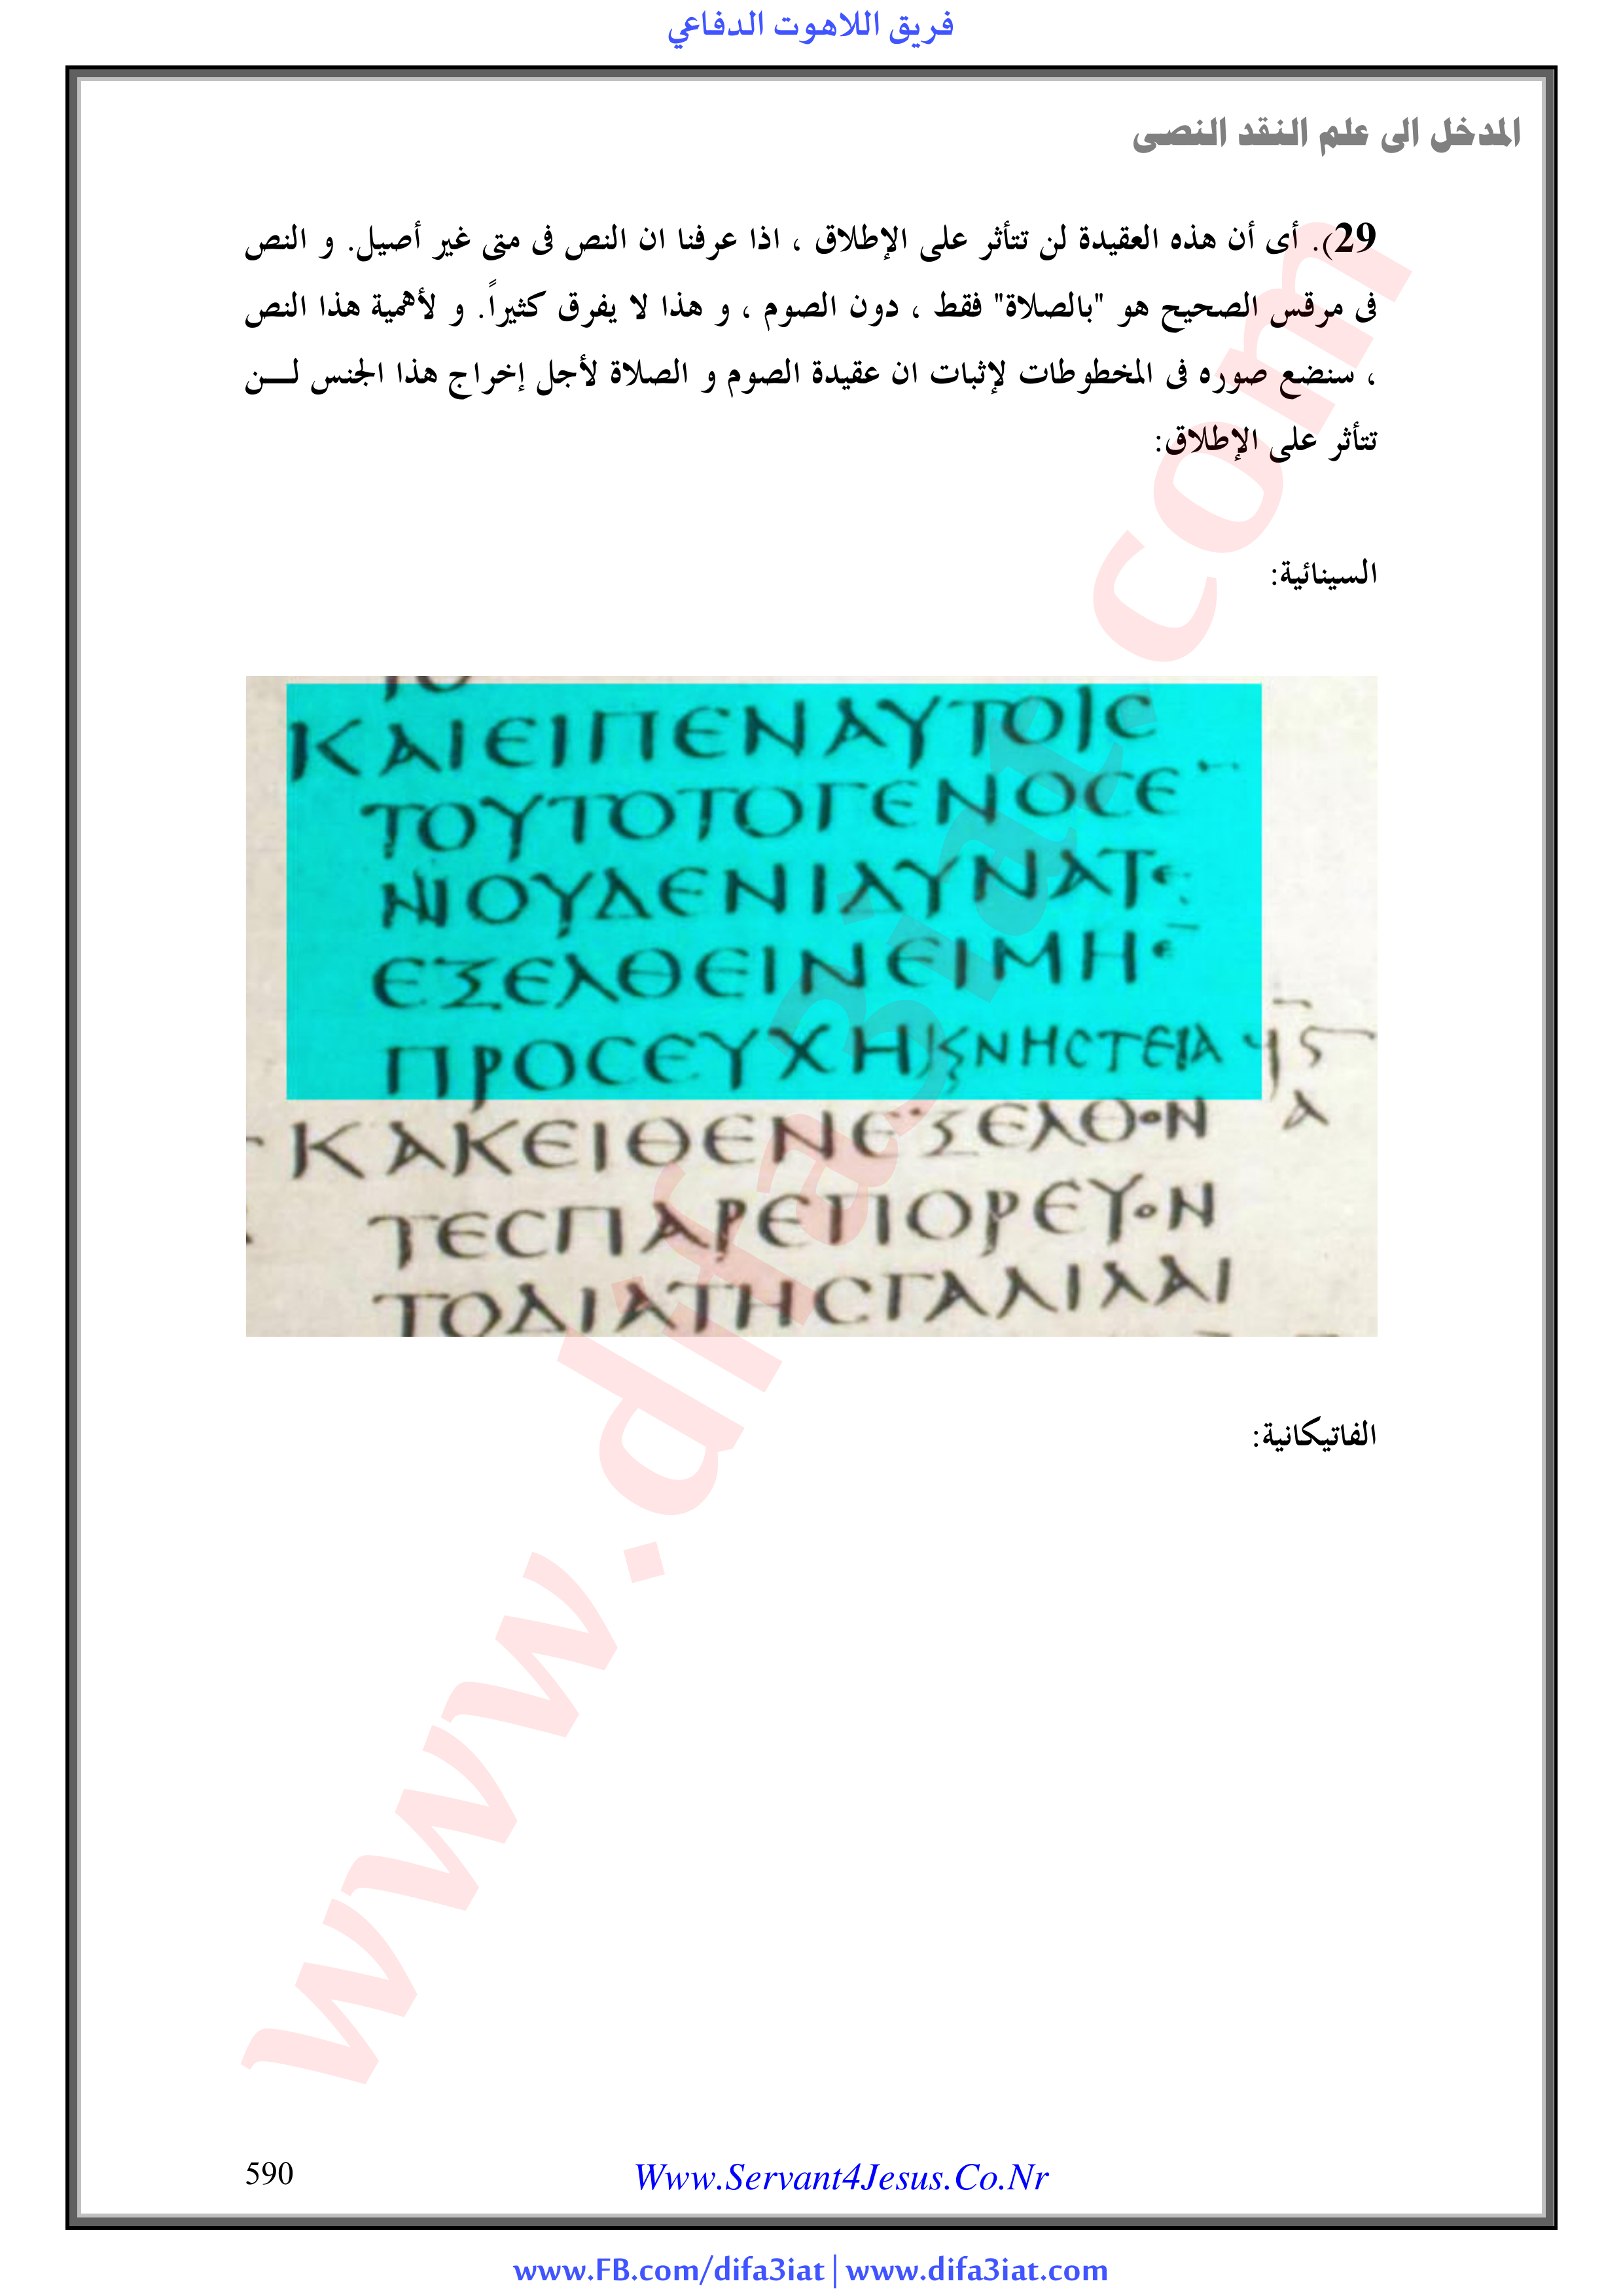 فريق اللاهوت الدفاعي
المدخل الى علم النقد النصى
29). أى أن هذه العقيدة لن تتأثر على الإطلاق ، اذا عرفنا ان النص فى متى غير أصيل. و النص
فى مرقس الصحيح هو "بالصلاة" فقط ، دون الصوم ، و هذا لا يفرق كثيراً. و لأهمية هذا النص
، سنضع صوره فى المخطوطات لإثبات ان عقيدة الصوم و الصلاة لأجل إخراج هذا الجنس لـــن
تتأثر على الإطلاق:
السينائية:
ΚΑΙΕΙΠΕΝΑΥΤΟΙϹ
ΤΟΥΤΟΤΟΓΕΝΟϹΕ
ΟΥΔΕΝΙΔΥΝΑΤΕ
ΕΞΕΛΘΕΙΝΕΙΜΗΕ
ΠΡΟϹΕΥΧΗΙϚΝΗϹΤΕΙΑ
ΚΑΚΕΙΘΕΝΕΞΕΛΘΟΝ
ΤΕϹΠΑΡΕΠΟΡΕΥΟΝ
ΤΟΔΙΑΤΗϹΓΑΛΙΛΑΙ
الفاتيكانية:
www.difa3iat.com
590
Www.Servant4Jesus.Co.Nr
www.FB.com/difa3iat | www.difa3iat.com